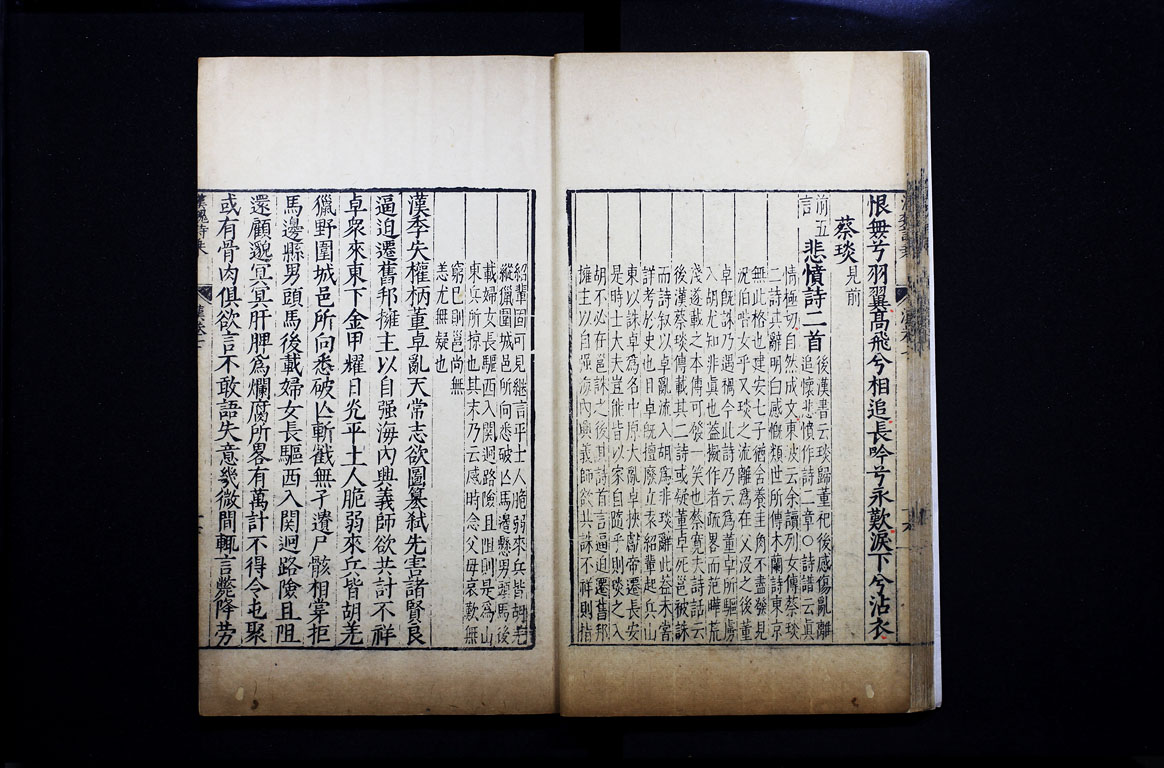 恨毋兮羽翼高飛兮相追長吟兮永歎淚下兮沾衣
蔡琰見前
前五言
悲憤詩二首
後漢書云琰歸董祀後感傷亂離
追懷悲憤作詩二章○詩譜云真
情極切自然成文東坡云余讀列女傳蔡琰
二詩其辭明白感慨類世所傳木蘭詩東京
無此格也建安七子猶含養圭角不盡發見
况伯喈女乎又琰之流離為在父沒之後董
卓既誅乃遇禍今此詩乃云為董卓所驅虜
入胡尤知非真也蓋擬作者疏畧而范曄荒
淺遂載之本傳可發一笑也蔡寬夫詩話云
後漢蔡琰傳載其二詩或疑董卓死邕被誅
而詩叙以卓亂流入胡為非琰辭此蓋未嘗
詳考於史也且卓既擅廢立袁紹輩起兵山
東以誅卓為名中原大亂卓挾獻帝遷長安
是時士大夫豈能皆以家自隨乎則琰之入
胡不必在邕誅之後其詩首言逼迫遷舊邦
擁主以自强海內興義師欲共誅不祥則指
紹輩固可見継言平士人脆弱來兵皆胡羌
縱獵圍城邑所向悉破亾馬邊懸男頭馬後
載婦女長驅西入関迴路險且阻則是為山
東兵所掠也其末乃云感時念父母哀歎無
窮已則邕尚無
恙尤無疑也
漢季失權柄董卓亂天常志欲圖篡弑先害諸賢良
逼迫遷舊邦擁主以自强海內興義師欲共討不祥
卓衆來東下金甲耀日炎平土人脆弱來兵皆胡羌
獵野圍城邑所向悉破亾斬截無孑遺尸骸相掌拒
馬邊縣男頭馬後載婦女長驅西入関迴路險且阻
還顧邈冥冥肝脾為爛腐所畧有萬計不得令屯聚
或有骨肉俱欲言不敢語失意幾微間輒言斃降虜